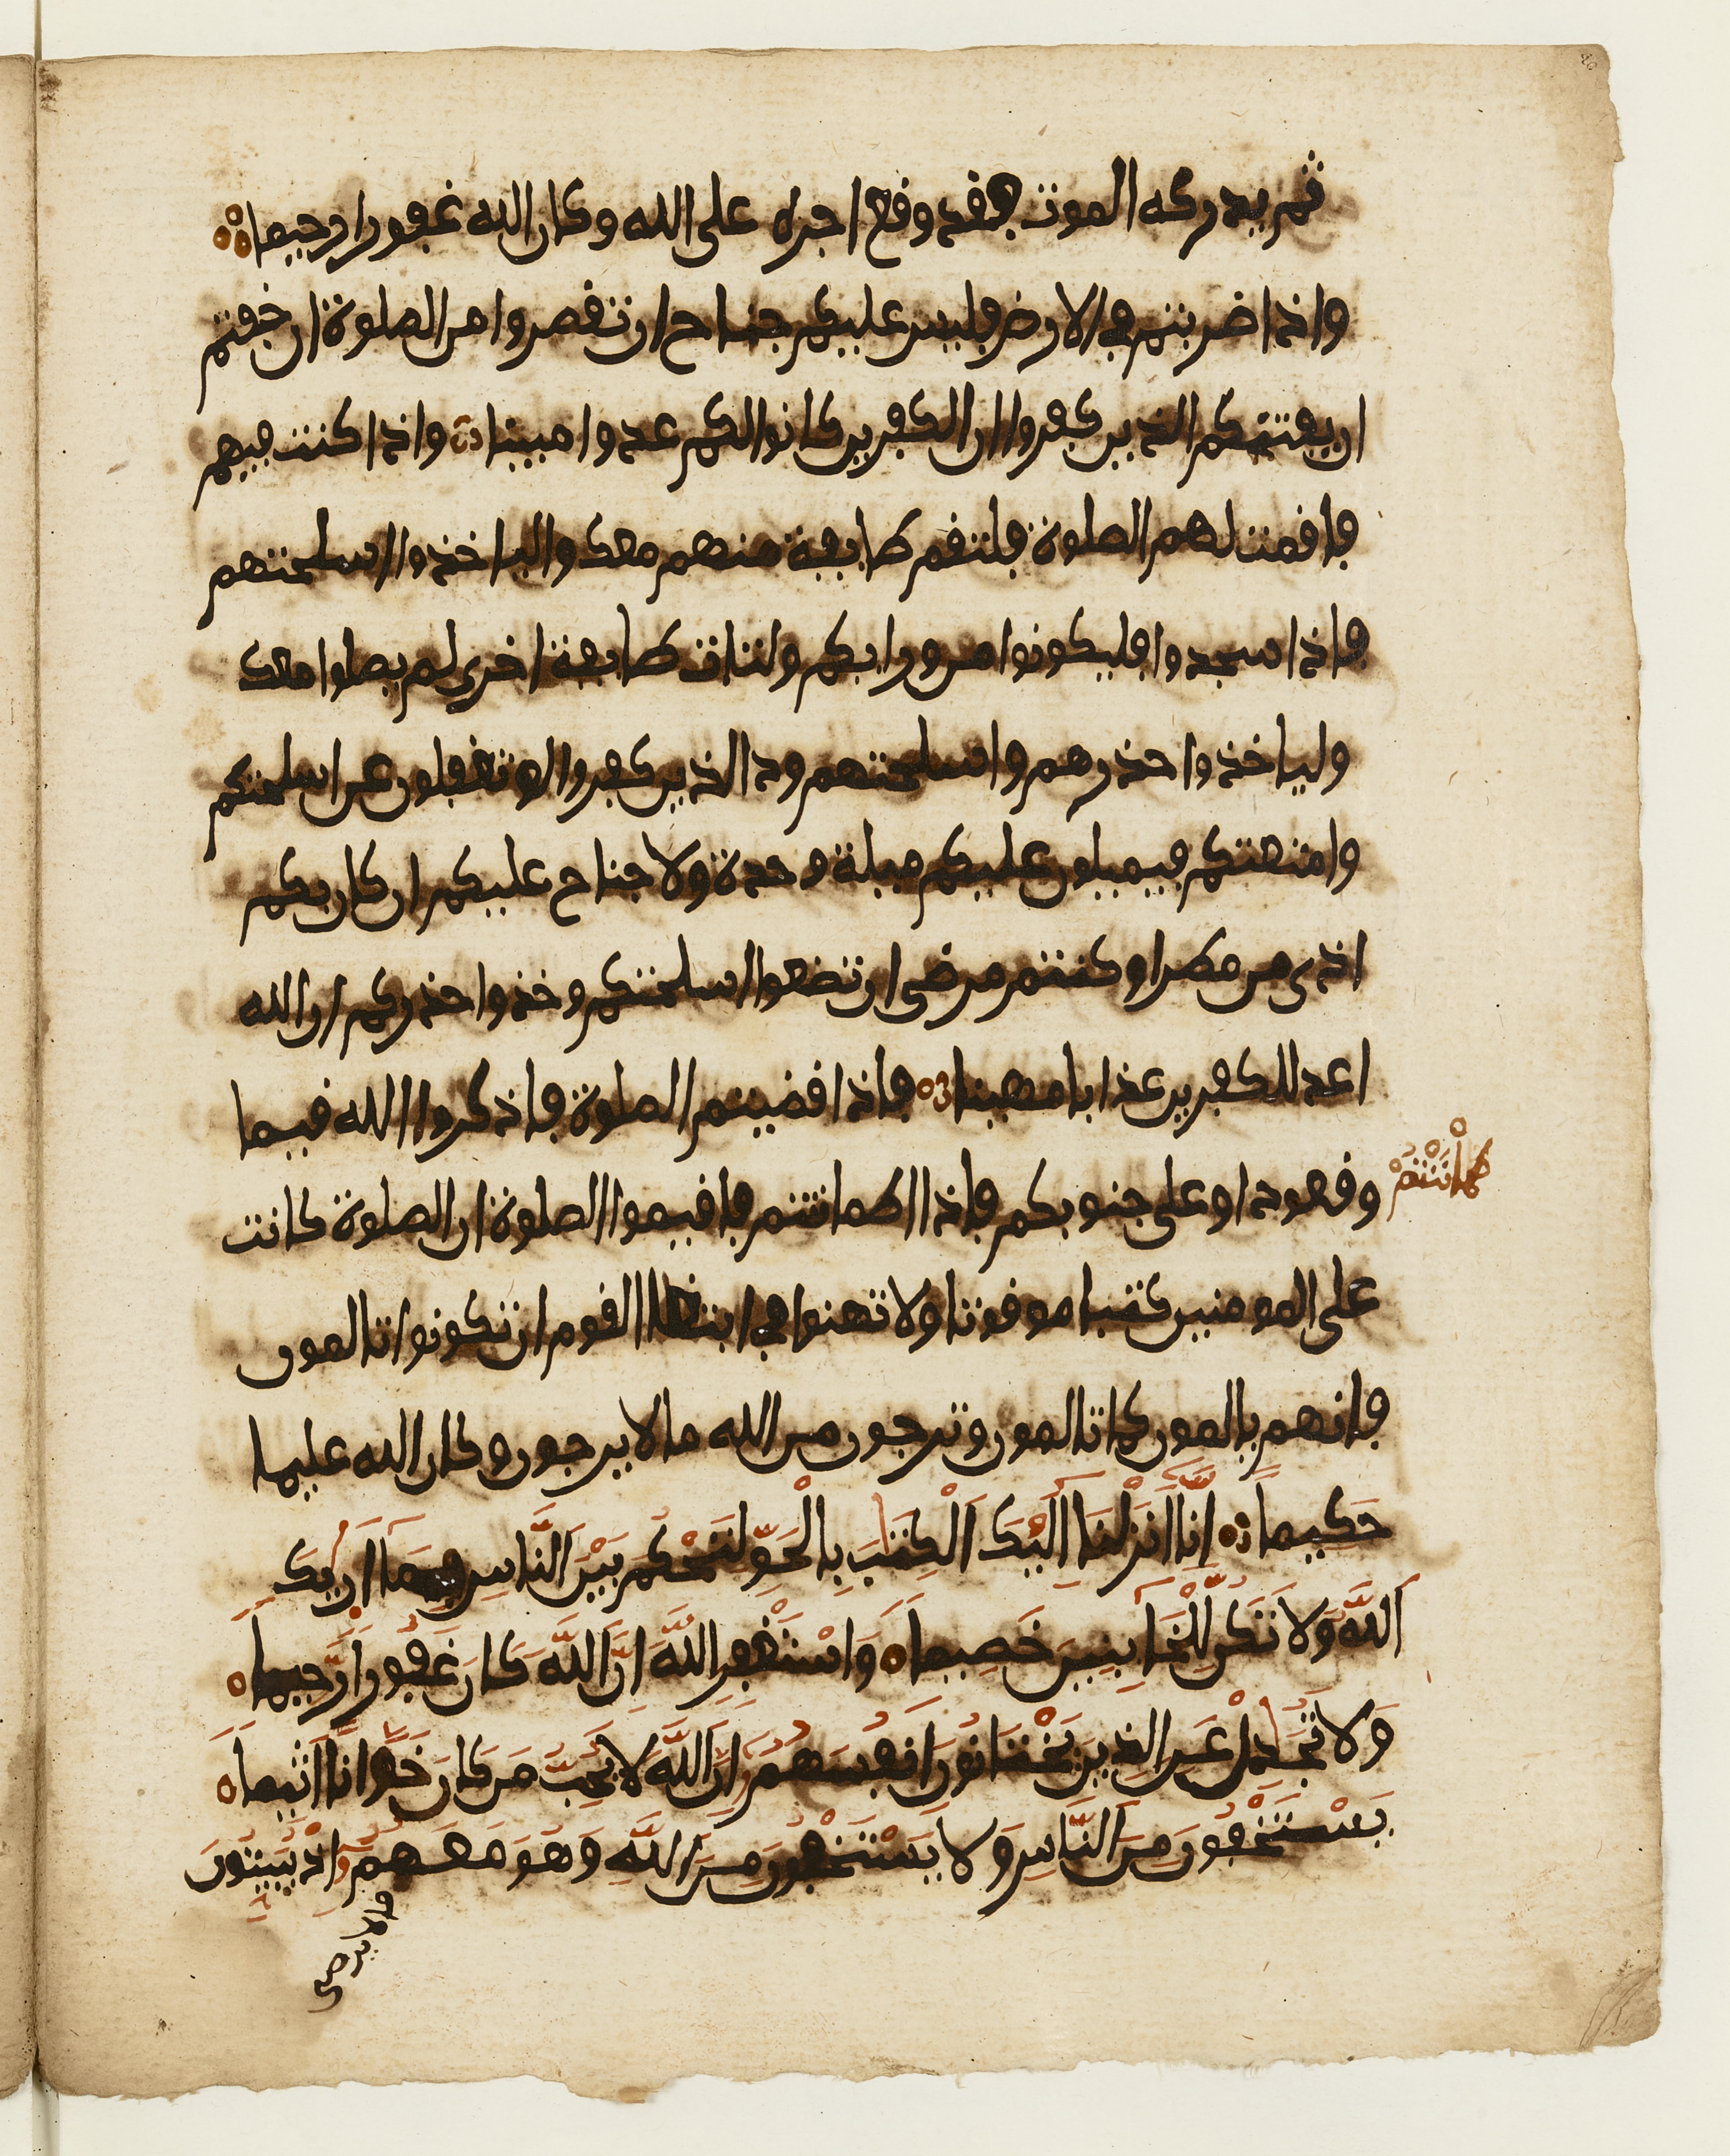 ثم يدركه الموت فقد وقع اجره على الله وكان الله غفورا رحيما
واذا ضربتم في الارض فليس عليكم جناح ان تقصروا من الصلوة ان خفتم
ان يفتنكم الذين كفروا ان الكفرين كانوا لكم عدوا مبينا واذا كنت فيهم
فاقمت لهم الصلوة فلتقم طايفة منهم معك والياخذوا اسلحتهم
فاذا سجدوا فليكونوا من ورايكم ولتات طايفة اخرى لم يصلوا معك
ولياخذوا حذرهم واسلحتهم ود الذين كفروا لو تغفلون عن اسلحتكم
وامتعتكم فيميلون عليكم ميلة وحدة ولا جناح عليكم ان كان بكم
اذى من مطر او كنتم مرضى ان تضعوا اسلحتكم وخذوا حذركم ان الله
اعد للكفرين عذابا مهينا فاذا قضيتم الصلوة فاذكروا الله قيما
وقعودا وعلى جنوبكم فاذا اطماننتم فاقيموا الصلوة ان الصلوة كانت
طمأننتم
على المومنين كتبا موقوتا ولا تهنوا في ابتغا القوم ان تكونوا تالمون
فانهم يالمون كما تالمون وترجون من الله ما لا يرجون وكان الله عليما
حَكِيما اِنَّا انزلنَا اِلَيْكَ اَلْكِتَٰبَ بِالْحَقِّ لتَحْكُمَ بَيْنَ اَلنَّاسِ بِمَا أَرَيكَ
اَللَّهُ وَلَا تَكُن لِّلْخَآيِنِينَ خَصِيما وَاسْتَغْفِرِ اِللَّهَ اِنَّ اَللَّهَ كَانَ غَفُورا رَّحِيماً
وَلَا تُجَٰدِلْ عَنِ اِلذِينَ يَخْتَانُونَ أَنفُسَهُمُ إِنَّ اَللَّهَ لَا يُحِبُّ مَن كَانَ خَوَّانا اَثِيماً
يَسْتَخْفُونَ مِنَ اَلنَّاسِ وَلَا يَسْتَخْفُونَ مِنَ اَللَّهِ وَهُوَ مَعَهُمُ إِذْ يُبَيِّتُونَ
ما لا يرضى